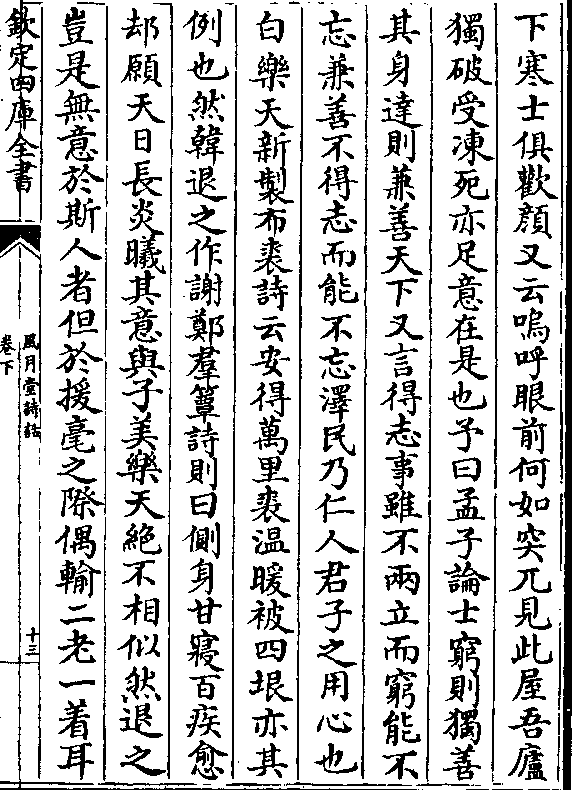 下寒士俱歡顔又云嗚呼眼前何如突兀見此屋吾廬
獨破受凍死亦足意在是也予曰孟子論士窮則獨善
其身達則兼善天下又言得志事雖不兩立而窮能不
忘兼善不得志而能不忘澤民乃仁人君子之用心也
白樂天新製布裘詩云安得萬里裘温暖被四垠亦其
例也然韓退之作謝鄭羣簟詩則曰側身甘寢百疾愈
却願天日長炎曦其意與子美樂天絶不相似然退之
豈是無意於斯人者但於援毫之際偶輸二老一着耳
欽定四庫全書
風月堂詩話
卷下
十三